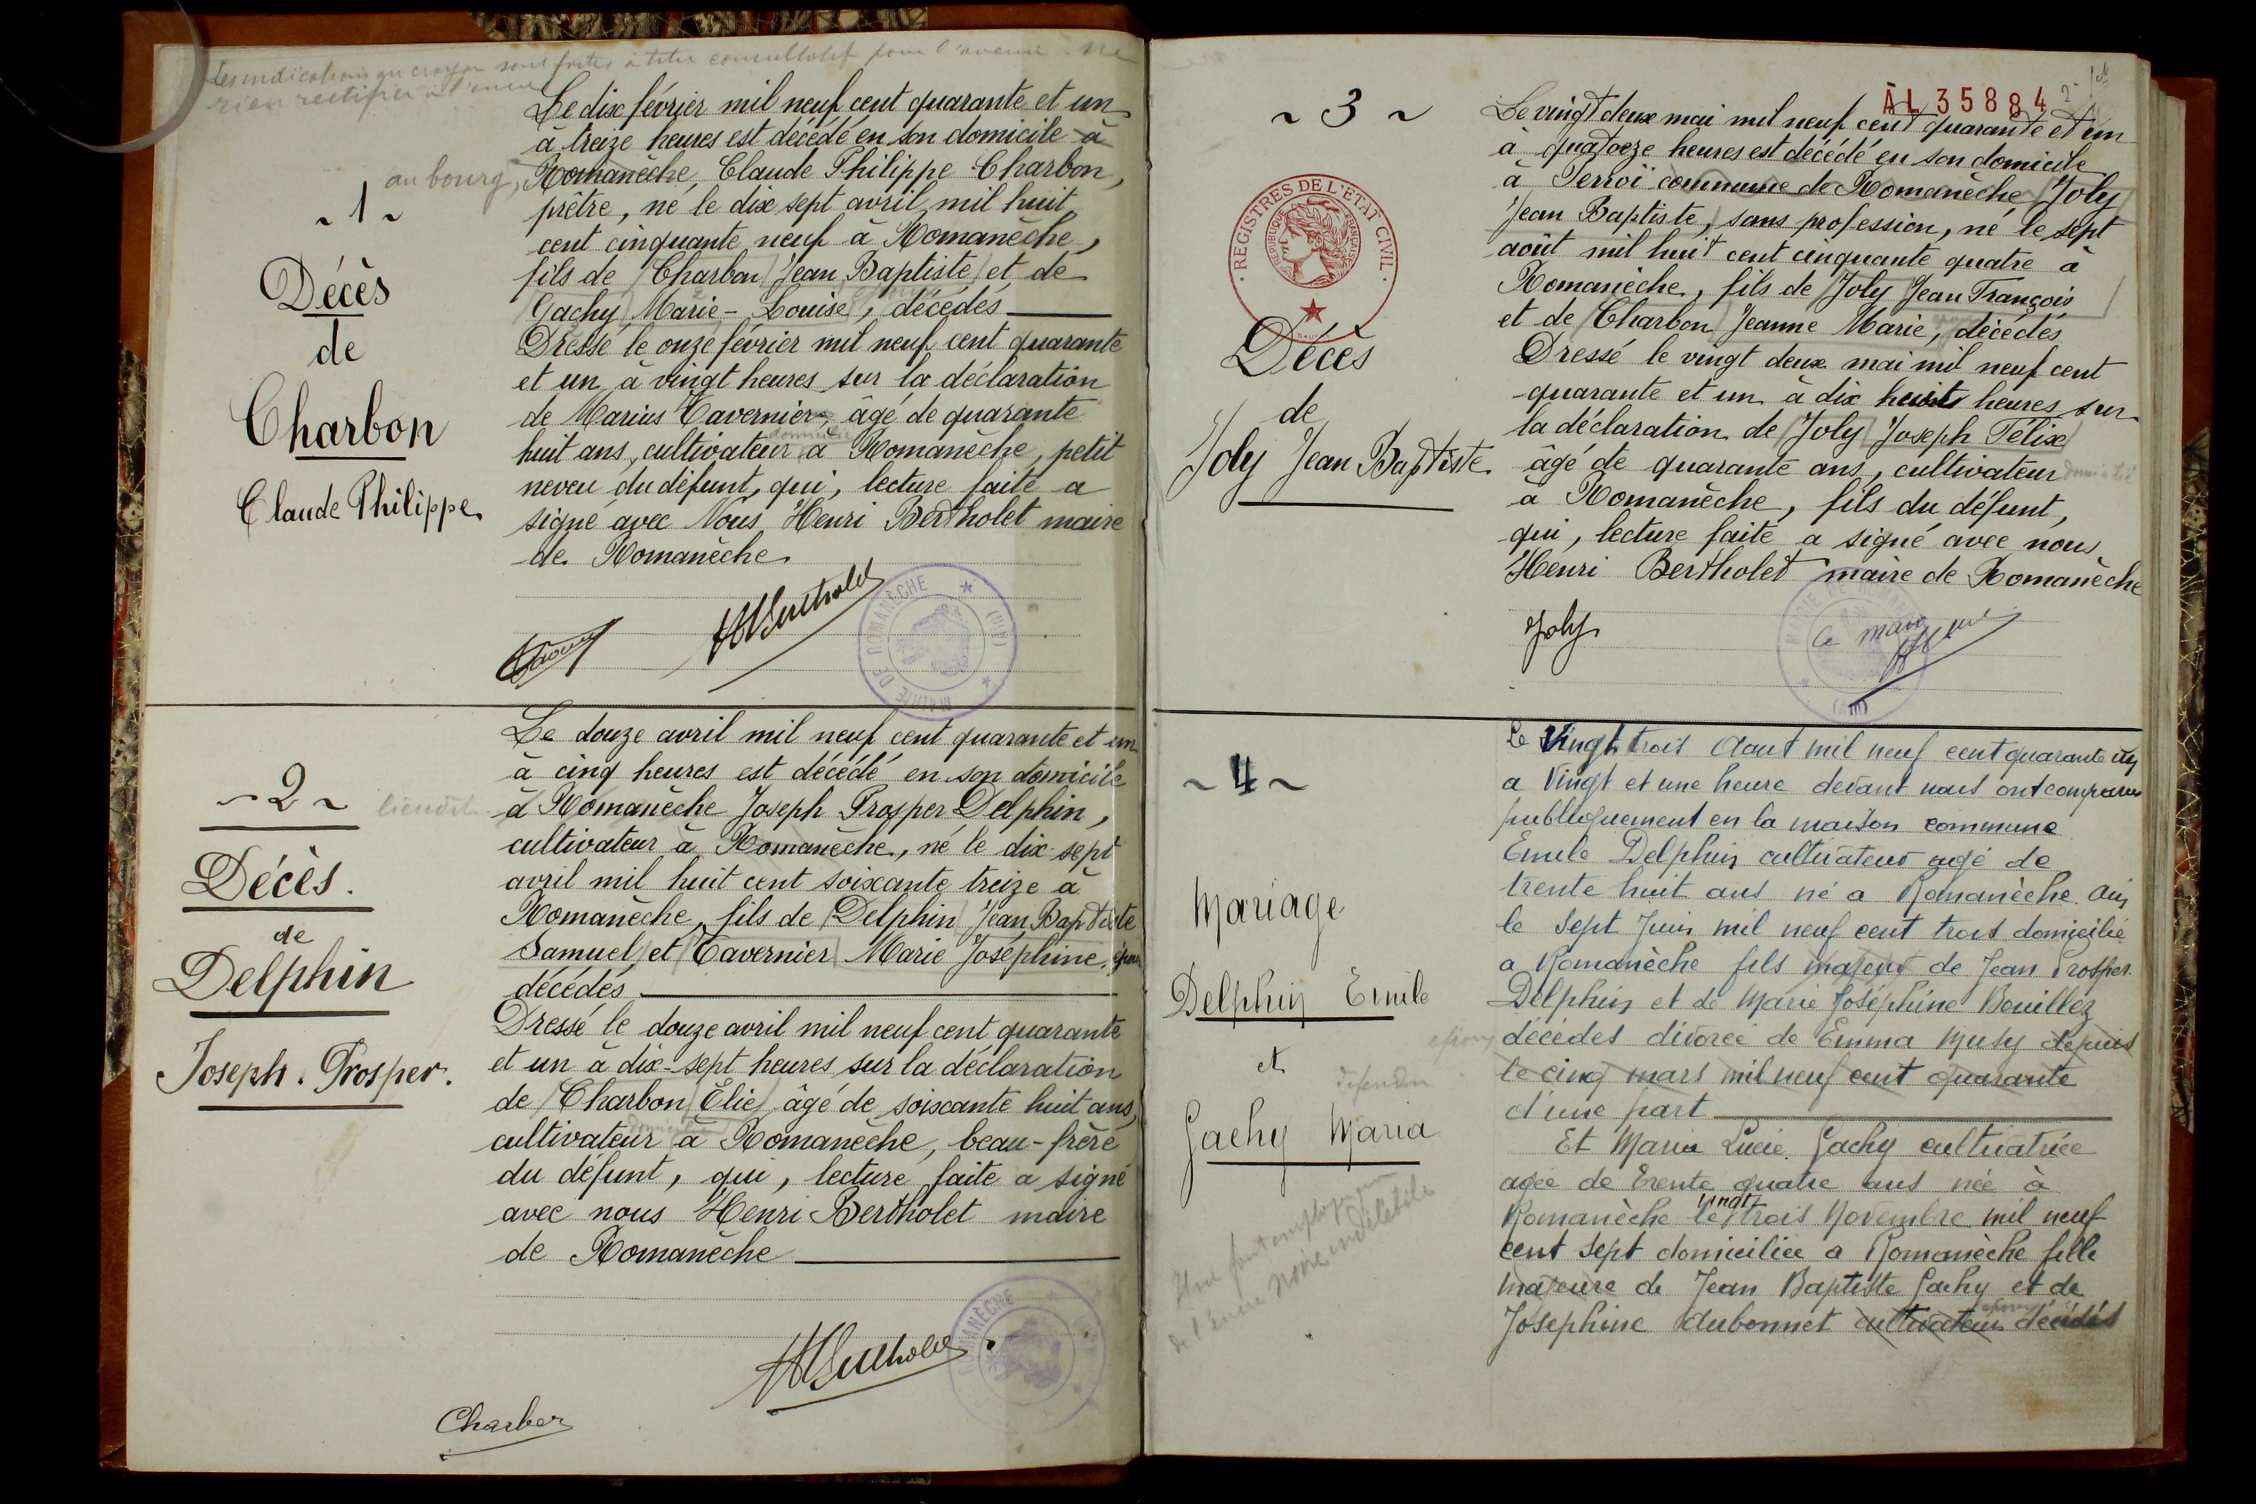 Les indications au crayon sont faites à titre consultatif pour l'avenir. ne
rien rectifier à l'encre
~ 1 ~
Décès
de
Charbon
Claude Philippe
au bourg,
Le dix février mil neuf cent quarante et un
à treize heures est décédé en son domicile à
Romanèche, Claude Philippe Charbon,
prêtre, né le dix sept avril mil huit
cent cinquante neuf à Romanèche,
fils de Charbon Jean Baptiste et de
Gachy Marie-Louise, décédés
Dressé le onze février mil neuf cent quarante
et un à vingt heures sur la déclaration
de Marius Tavernier, âgé de quarante
domicilié
huit ans, cultivateur à Romanèche, petit
neveu du défunt, qui, lecture faite a
signé avec Nous, Henri Bertholet maire
de Romanèche
HBertholet
MAIRIE DE ROMANÈCHE (AIN)
~ 2 ~
Décès.
de
Delphin
Joseph. Prosper.
lieudit
Le douze avril mil neuf cent quarante et un
à cinq heures est décédé en son domicile
à Romanèche Joseph Prosper Delphin,
cultivateur à Romanèche, né le dix-sept
avril mil huit cent soixante treize à
Romanèche, fils de Delphin Jean Baptiste
Samuel et Tavernier Marie Joséphine,
décédés
Dressé le douze avril mil neuf cent quarante
et un à dix-sept heures sur la déclaration
de Charbon Élie, âgé de soixante huit ans,
domicilié
cultivateur à Romanèche, beau-frère
du défunt, qui, lecture faite a signé
avec nous Henri Bertholet maire
de Romanèche
HBertholet
ROMANÈCHE
Charbon
AL 35884
~ 3 ~
REGISTRES DE L'ÉTAT CIVIL
RÉPUBLIQUE FRANÇAISE
Décès
de
Joly Jean Baptiste
Le vingt deux mai mil neuf cent quarante et un
à quatorze heures est décédé en son domicile
à Perroi commune de Romanèche Joly
Jean Baptiste, sans profession, né le sept
août mil huit cent cinquante quatre à
Romanèche, fils de Joly Jean François
et de Charbon Jeanne Marie, décédés
Dressé le vingt deux mai mil neuf cent
quarante et un à dix huit heures sur
la déclaration de Joly Joseph Félix
âgé de quarante ans, cultivateur domicilié
à Romanèche, fils du défunt,
qui, lecture faite a signé avec nous
Henri Bertholet maire de Romanèche
Joly
Le maire
~ 4 ~
Mariage
Delphin Emile
et
Gachy Maria
Il ne faut employer que
de l'encre noire indélébile
Le Vingt trois Aout mil neuf cent quarante un
a Vingt et une heure devant nous ont comparu
publiquement en la maison commune
Emile Delphin cultivateur agé de
trente huit ans né a Romanèche Ain
le sept Juin mil neuf cent trois domicilié
a Romanèche fils majeur de Jean Prosper
Delphin et de Marie Joséphine Bouillez
époux
décédés divorcé de Emma Musy depuis
le cinq mars mil neuf cent quarante
d'une part
Et Maria Lucie Gachy cultivatrice
agée de trente quatre ans née à
vingt
Romanèche le trois Novembre mil neuf
cent sept domiciliée a Romanèche fille
majeure de Jean Baptiste Gachy et de
époux
Joséphine dubonnet cultivateurs décédés